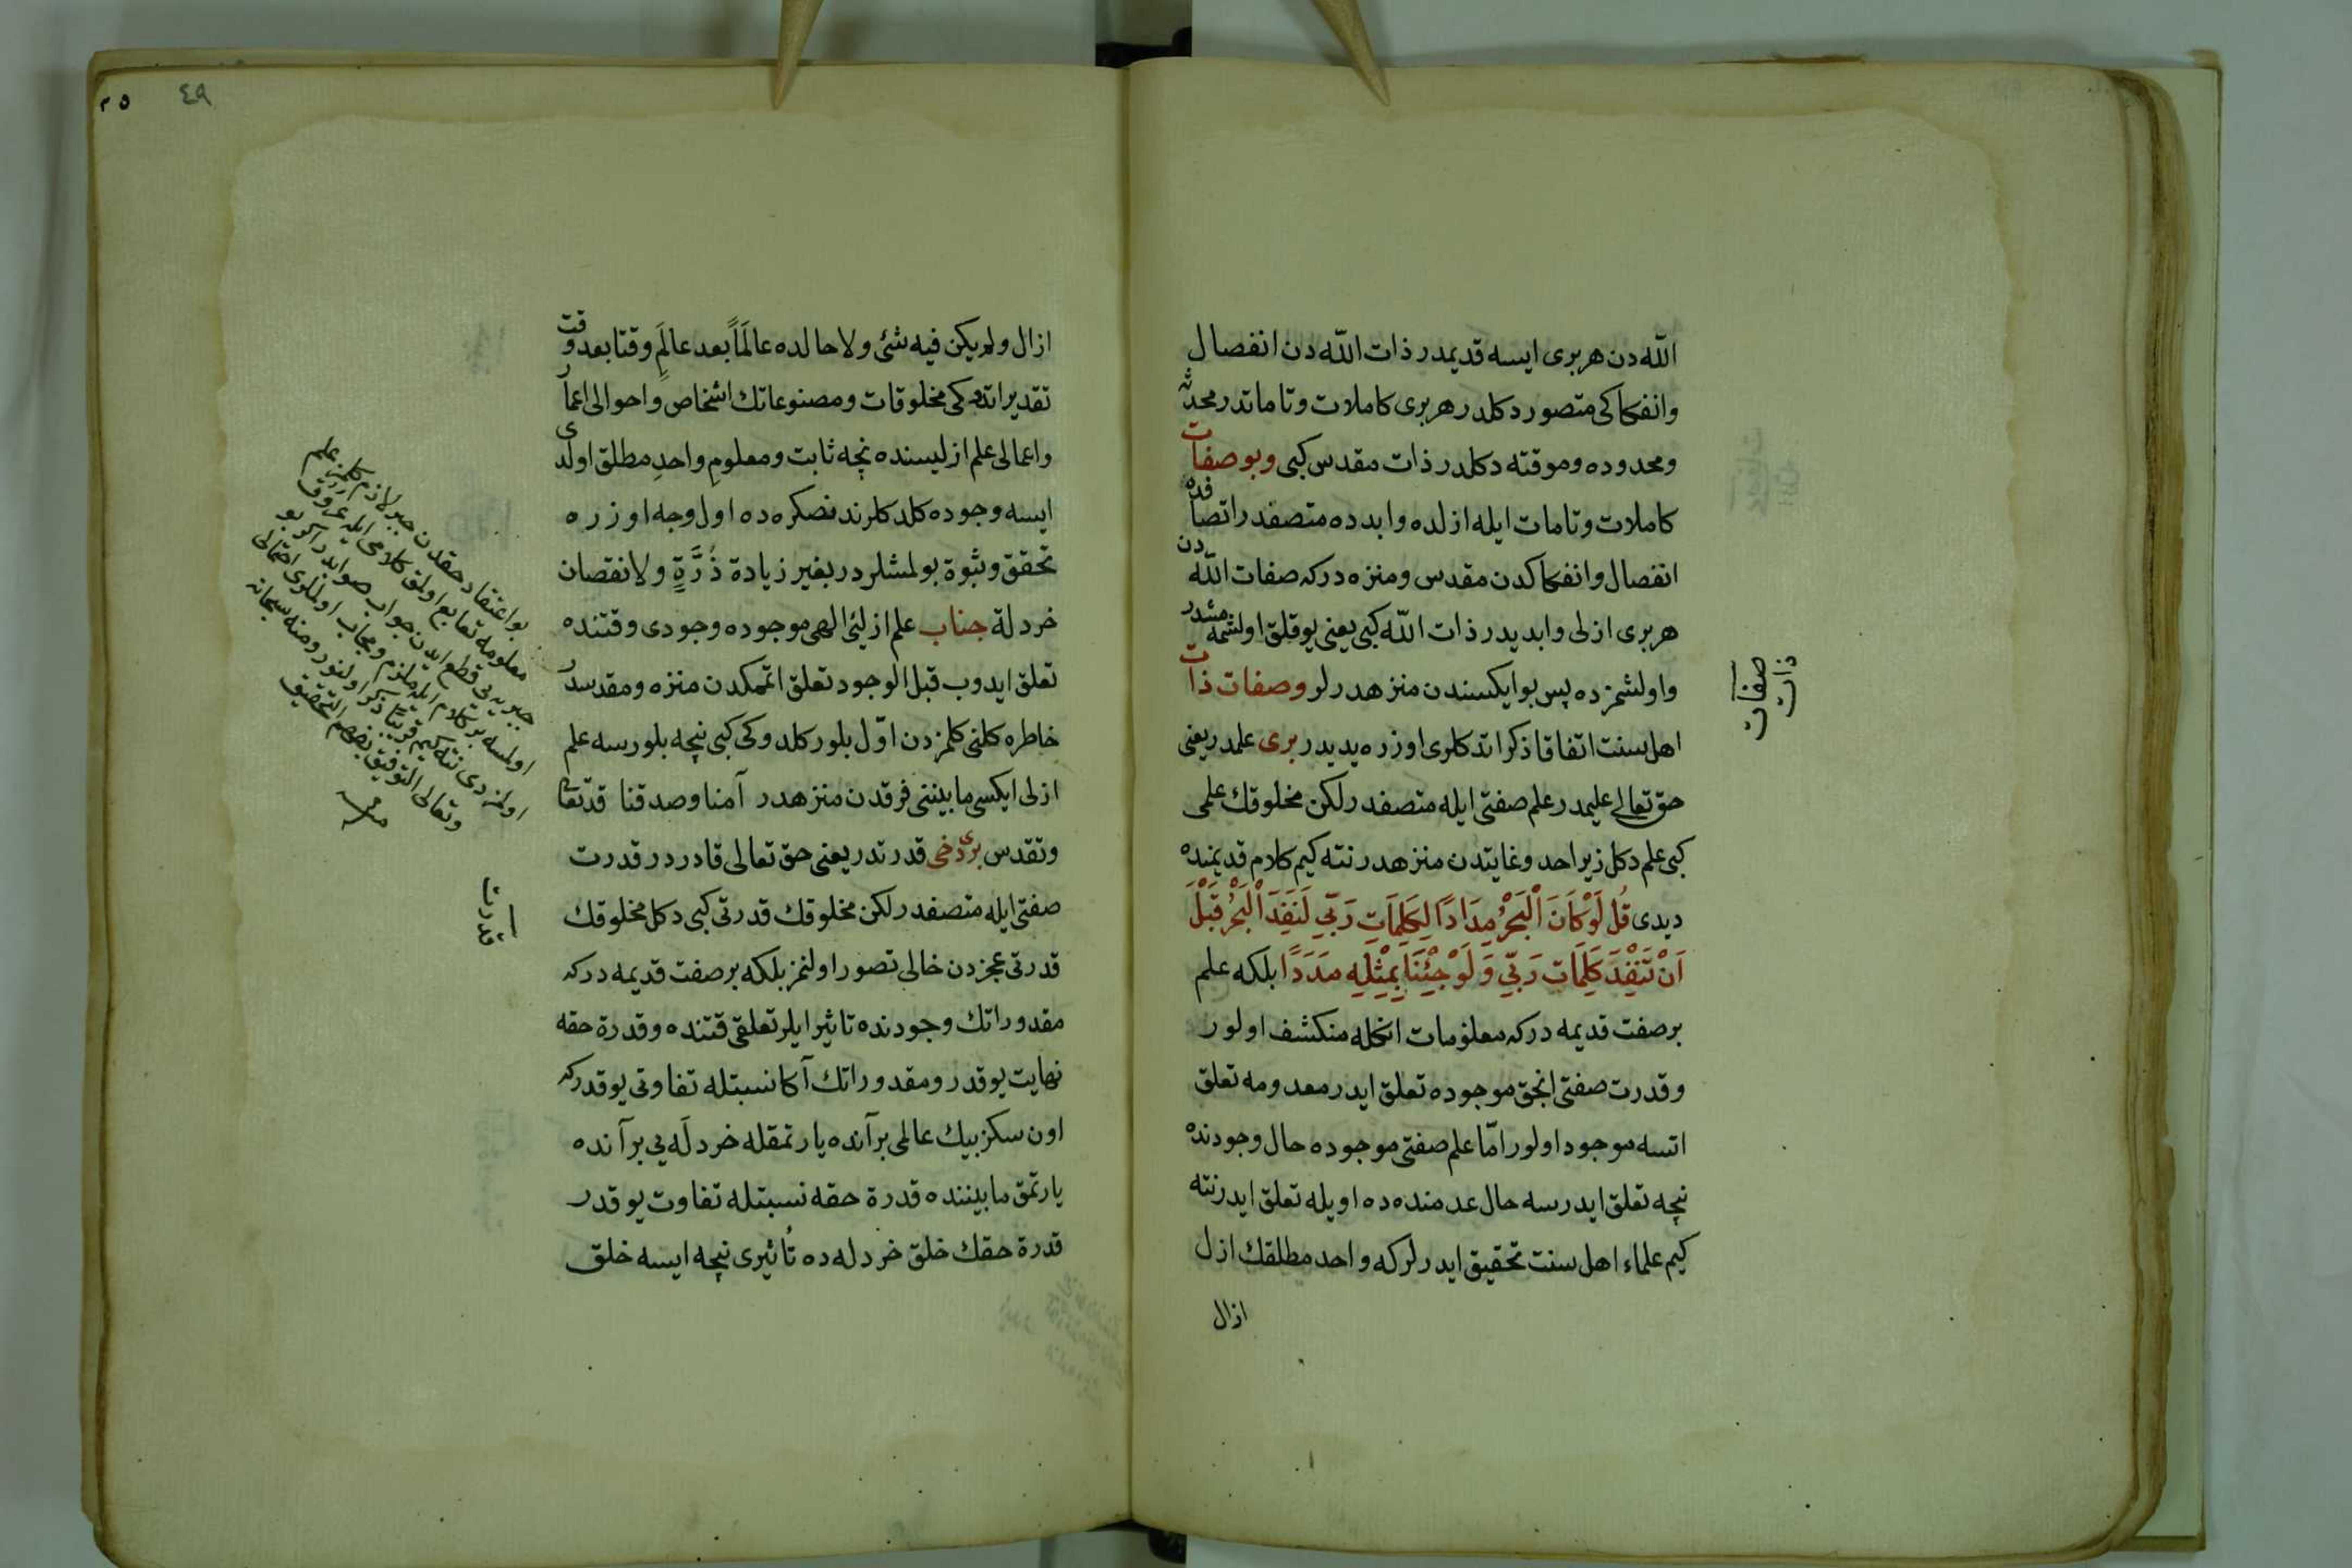 الله دن هربری ایسه قدیمدر ذات الله دن انفصال
وانفکاکی متصور دکلدر هربری کاملات وتاماتدر محدثه
ومحدوده وموقته دکلدر ذات مقدس کبی وبو صفات
کاملات وتامات ایله ازلده وابدده متصفدر اتصافده
انفصال وانفکاکدن مقدس ومنزه درکه صفات الله دن
هربری ازلی وابدیدر ذات الله کبی یعنی یوقلق اولشمه مشدر
واولشمزده پس بو ایکسندن منزهدرلر وصفات ذات
اهل سنت اتفاقا ذکر اتدکلری اوزره یدیدر بری علمدر یعنی
حق تعالی علیمدر علم صفتی ایله متصفدر لکن مخلوقك علمی
کبی علم دکل زیرا حد وغایتدن منزهدر نته کیم کلام قدیمنده
دیدی قُل لَوْ كَانَ الْبَحْرُ مِدَادًا لِكَلِمَاتِ رَبّي لَنَفِدَ الْبَحْرُ قَبْلَ
اَنْ تَنْفَدَ كَلِمَاتُ رَبّي وَلَوْ جِئْنَا بِمِثْلِهِ مَدَدًا بلکه علم
بر صفت قدیمه درکه معلومات انکله منکشف اولور
وقدرت صفتی انجق موجوده تعلق ایدر معدومه تعلق
اتسه موجود اولور امّا علم صفتی موجوده حال وجودنده
نیچه تعلق ایدرسه حال عدمنده ده اویله تعلق ایدر نته
کیم علماء اهل سنت تحقیق ایدرلرکه واحد مطلقك ازل
ازال
صفات
ذات
٤٩
٢٥
ازال ولم یکن فیه شئ ولا حالده عالَمًا بعد عالَمٍ وقتا بعد وقت
تقدیر اتدوکی مخلوقات ومصنوعاتك اشخاص واحوالی اعمار
واعمالی علم ازلیسنده نیچه ثابت ومعلوم واحد مطلق اولدی
ایسه وجوده کلدکلرندنصکره ده اول وجه اوزره
تحقق وثبوة بولمشلردر بغیر زیادة ذُرَّةٍ ولا نقصان
خردلة جناب علم ازلئ الهی موجوده وجودی وقتنده
تعلق ایدوب قبل الوجود تعلق اتممکدن منزه ومقدسدر
خاطره کلنی کلمزدن اوّل بلور کلدوکی کبی نیچه بلورسه علم
ازلی ایکسی مابیننی فرقدن منزهدر آمنا وصدقنا قد تعالی
وتقدس بری دخی قدرتدر یعنی حق تعالی قادردر قدرت
صفتی ایله متصفدر لکن مخلوقك قدرتی کبی دکل مخلوقك
قدرتی عجزدن خالی تصور اولنمز بلکه بر صفت قدیمه درکه
مقدوراتك وجودنده تاثیر ایلر تعلقی قتنده وقدرة حقه
نهایت یوقدر ومقدوراتك آکا نسبتله تفاوتی یوقدرکه
اون سکز بیك عالمی بر آنده یارتمقله خردله یی بر آنده
یارتمق مابیننده قدرة حقه نسبتله تفاوت یوقدر
قدرة حقك خلق خردله ده تأثیری نیچه ایسه خلق
بو اعتقاد حقدن جبر لازم کلمز علم
معلومه تابع اولمق کلامی ایله
جبریه یی قطع ایدن جواب صوابدر اکر بو
قدرت